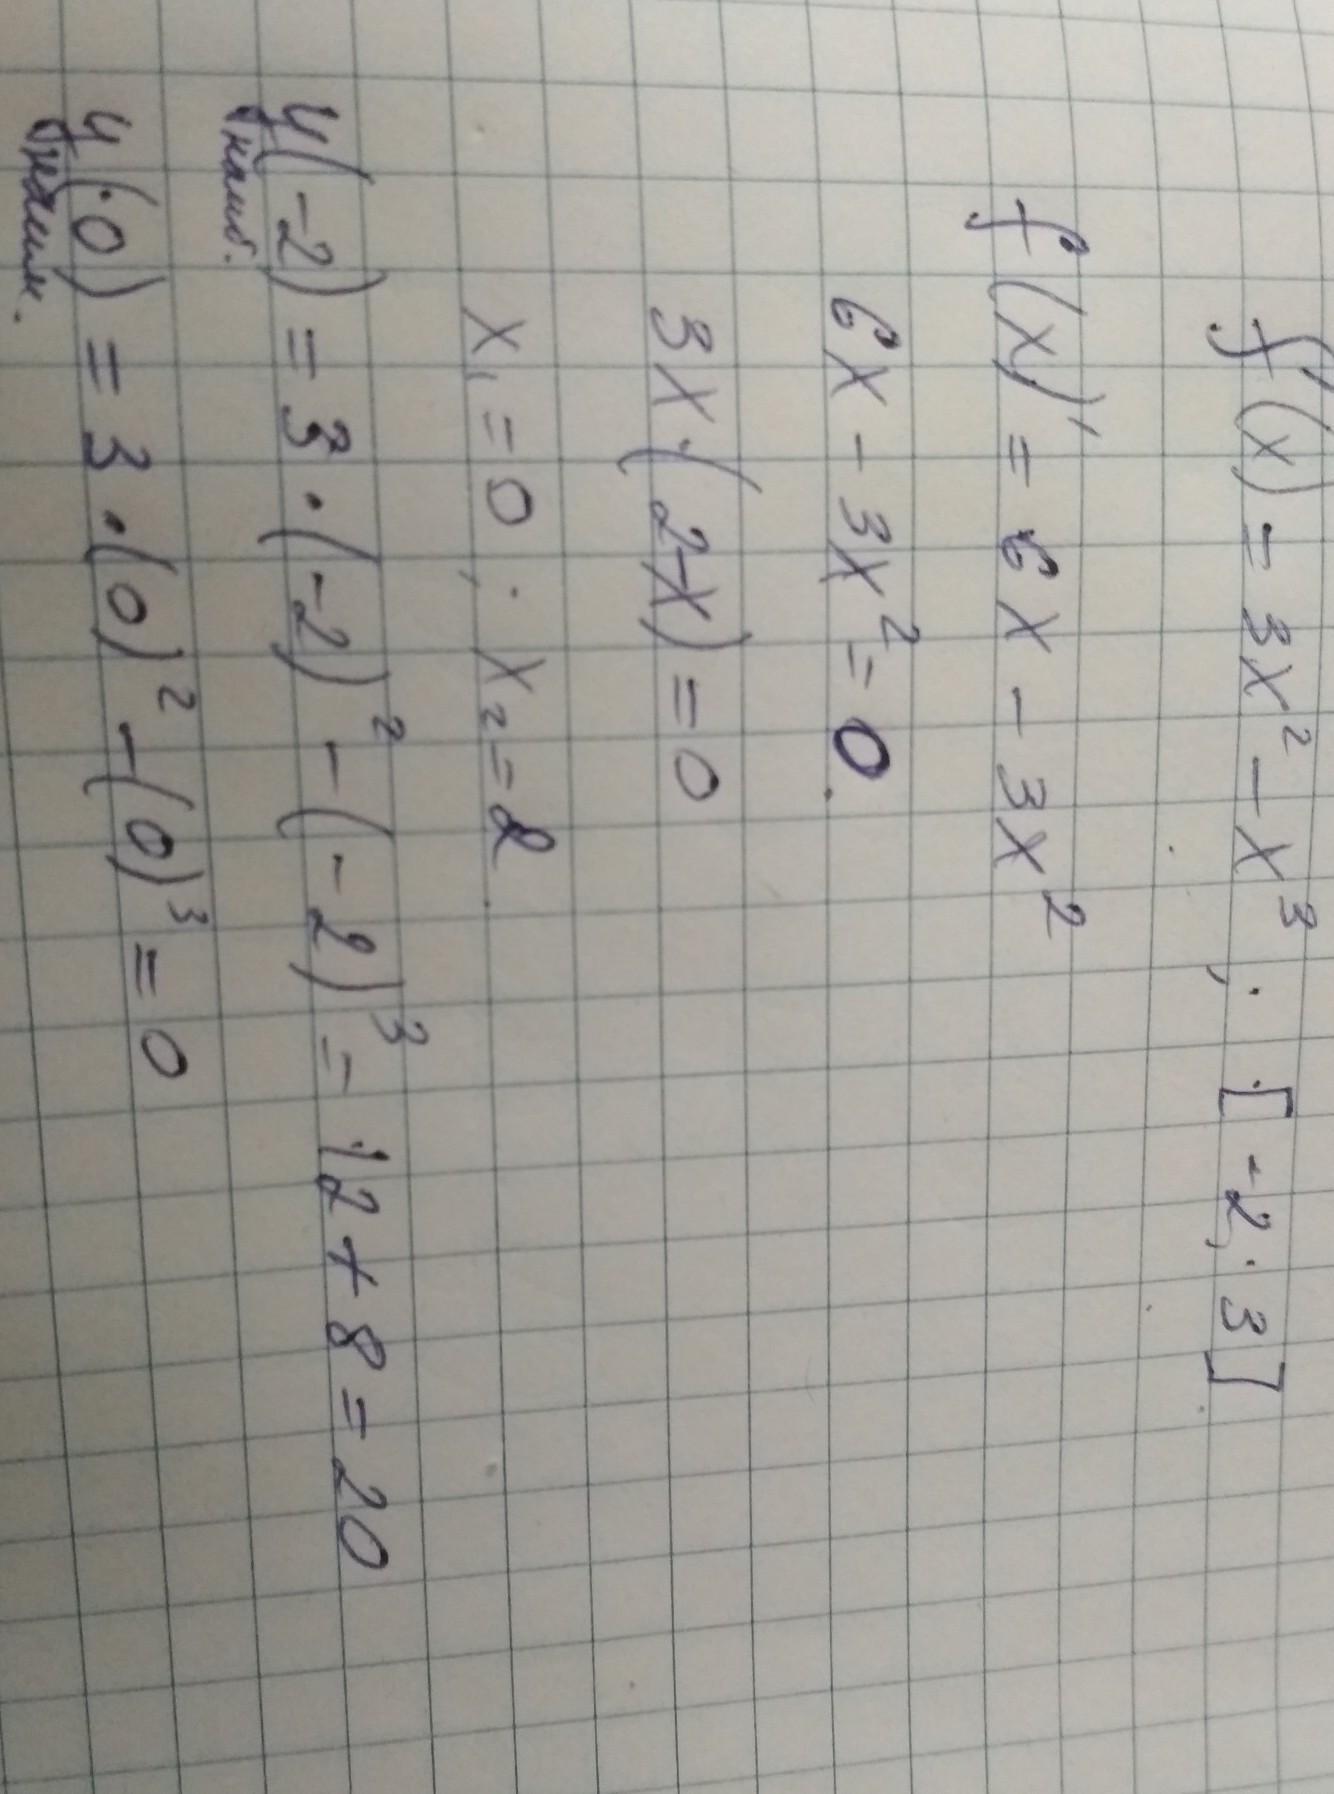 f'(x) = 3x² - x³ ; [-2; 3]
f(x)' = 6x - 3x²
6x - 3x² = 0.
3x·(2-x) = 0
x₁ = 0 ; x₂ = 2
y(-2) = 3·(-2)² - (-2)³ = 12 + 8 = 20
наиб.
y(0) = 3·(0)² - (0)³ = 0
наим.